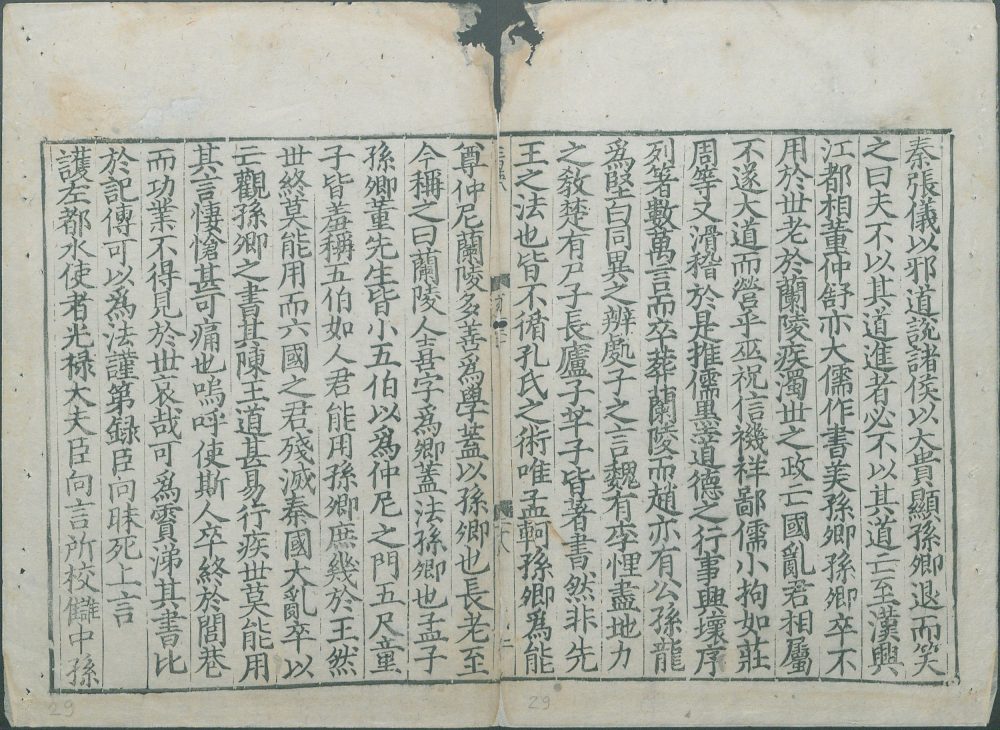 秦張儀以邪道說諸侯以大貴顯孫卿退而笑
之曰夫不以其道進者必不以其道亡至漢興
江都相董仲舒亦大儒作書美孫卿孫卿卒不
用於世老於蘭陵疾濁世之政亡國亂君相屬
不遂大道而營乎巫祝信禨祥鄙儒小拘如莊
周等又滑稽於是推儒墨道德之行事興壞序
列著數萬言而卒葬蘭陵而趙亦有公孫龍
爲堅白同異之辨處子之言魏有李悝盡地力
之敎楚有尸子長廬子芋子皆著書然非先
王之法也皆不循孔氏之術唯孟軻孫卿爲能
尊仲尼蘭陵多善爲學蓋以孫卿也長老至
今稱之曰蘭陵人喜字爲卿蓋法孫卿也孟子
孫卿董先生皆小五伯以爲仲尼之門五尺童
子皆羞稱五伯如人君能用孫卿庶幾於王然
世終莫能用而六國之君殘滅秦國大亂卒以
亡觀孫卿之書其陳王道甚易行疾世莫能用
其言悽愴甚可痛也嗚呼使斯人卒終於閭巷
而功業不得見於世哀哉可爲霣涕其書比
於記傳可以爲法謹第録臣向昧死上言
護左都水使者光禄大夫臣向言所校讎中孫
29
29